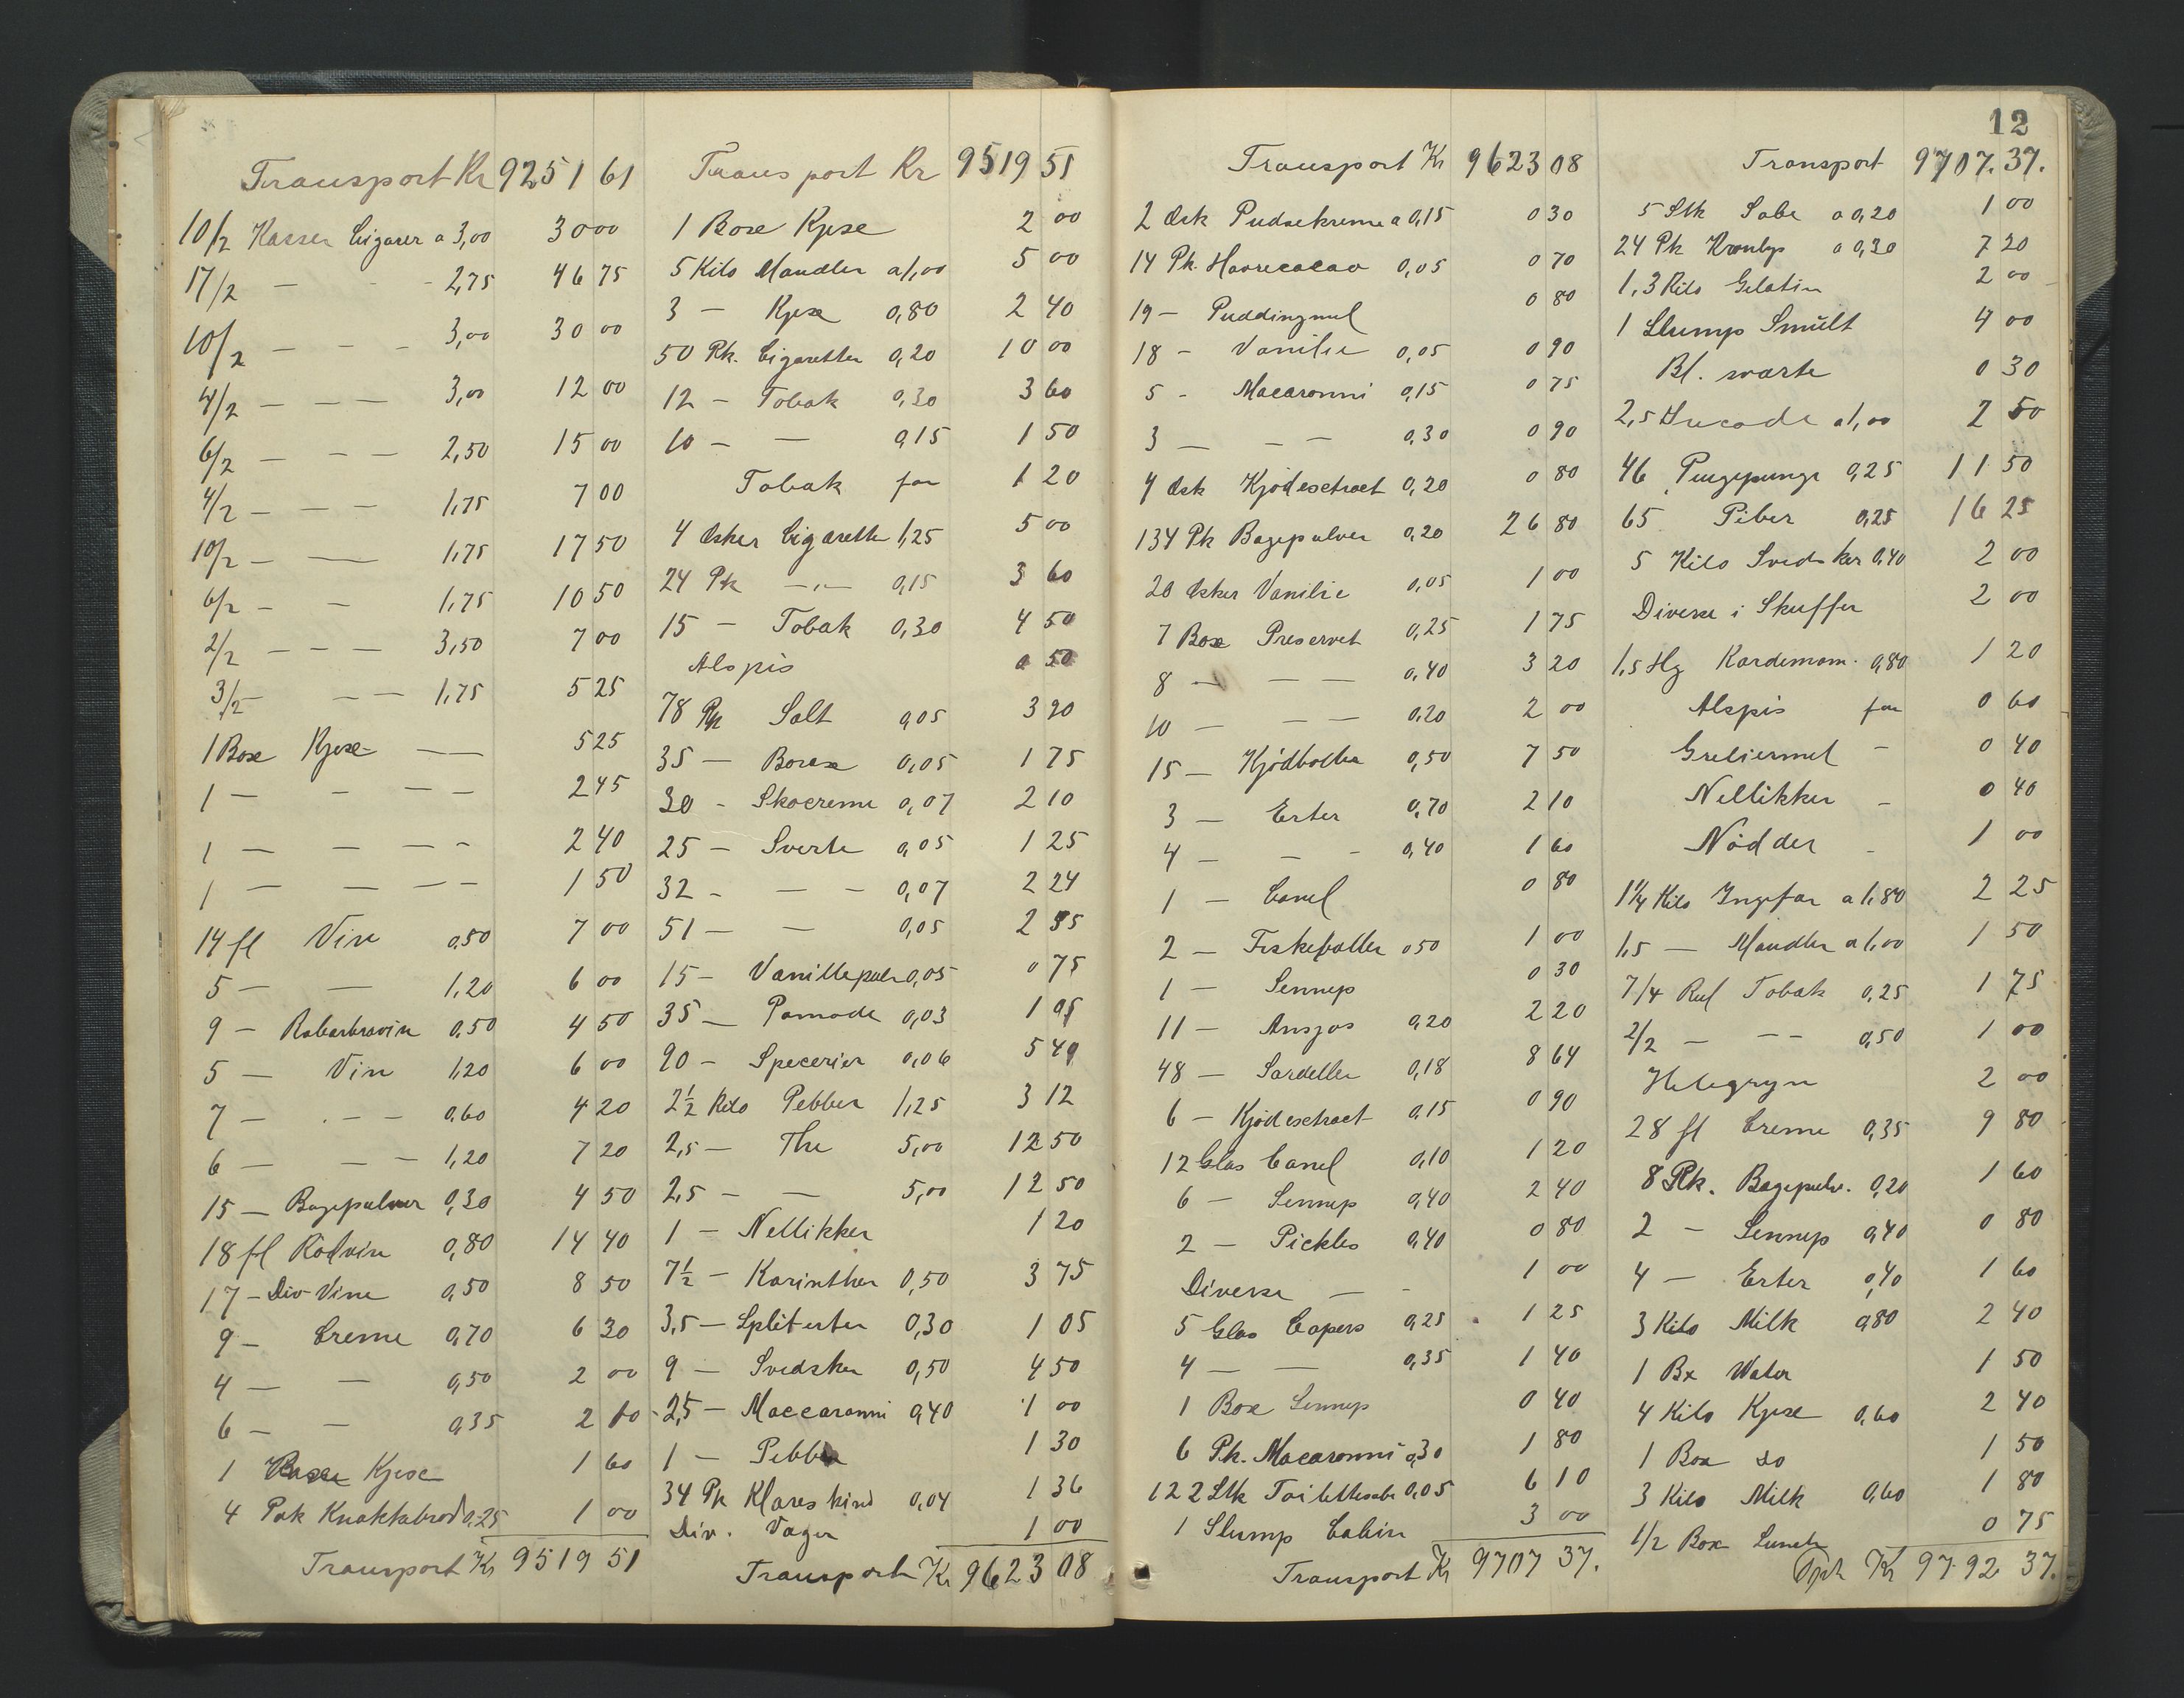 Transport Kr 9251 61
10/2 Kasser Cigarer a 3,00 30 00
17/2 — - - 2,75 46 75
10/2 — - - 3,00 30 00
4/2 — — — 3,00 12 00
6/2 — — — 2,50 15 00
4/2 — — — 1,75 7 00
10/2 — — 1,75 17 50
6/2 — — 1,75 10 50
2/2 — — — 3,50 7 00
3/2 — — — 1,75 5 25
1 Boxe Kjexe — — 5 25
1 — — — — 2 45
1 — — — - 2 40
1 — — — — 1 50
14 fl Vin 0,50 7 00
5 — — 1,20 6 00
9 — Rabarbravin 0,50 4 50
5 — Vin 1,20 6 00
7 — . — — 0,60 4 20
6 — — — 1,20 7 20
15 — Bagepulver 0,30 4 50
18 fl Rödvin 0,80 14 40
17 — Div Vine 0,50 8 50
9 — Creme 0,70 6 30
4 — — 0,50 2 00
6 — — 0,35 2 10
1 Kjexe 1 60
4 Pak Knakkebrod 0,25 1 00
Transport Kr 9519 51
Transport Kr 9519 51
1 Boxe Kjexe 2 00
5 Kilo Mandler a 1,00 5 00
3 — Kjexe 0,80 2 40
50 Pk. Cigaretter 0,20 10 00
12 — Tobak 0,30 3 60
10 — — 0,15 1 50
Tobak for 1 20
4 Esker Cigarette 1,25 5 00
24 Pk —„— 0,15 3 60
15 — Tobak 0,30 4 50
Alspis 0 50
78 Pk Salt 0,05 3 90
35 — Borax 0,05 1 75
30 - Skocreme 0,07 2 10
25 — Sverte 0,05 1 25
32 - — - 0,07 2 24
51 — — 0,05 2 55
15 — Vanillepulv 0,05 0 75
35 — Pomade 0,03 1 05
90 — Specerier 0,06 5 40
2½ Kilo Pebber 1,25 3 12
2,5 — The 5,00 12 50
2,5 — — 5,00 12 50
1 — Nellikker 1 20
7½ — Korinther 0,50 3 75
3,5 — Spliterter 0,30 1 05
9 — Svedsker 0,50 4 50
2,5 — Maccaronni 0,40 1 00
1 — Pebber 1 30
34 Pk Klareskind 0,04 1 36
Div. Vager 1 00
Transport Kr 9623 08
Transport Kr 9623 08
2 Esk Pudsekreme a 0,15 0 30
14 Pk. Havrecacao 0,05 0 70
19 — Puddingmel 0 80
18 — Vanilie 0,05 0 90
5 - Macaronni 0,15 0 75
3 — — — 0,30 0 90
4 Esk Kjödextract 0,20 0 80
134 Pk Bagepulver 0,20 26 80
20 Esker Vanilie 0,05 1 00
7 Boxe Preservet 0,25 1 75
8 — — — 0,40 3 20
10 — — — 0,20 2 00
15 — Kjödboller 0,50 7 50
3 — Erter 0,70 2 10
4 — — - 0,40 1 60
1 — Canel 0 80
2 — Fiskeboller 0 50 1 00
1 — Sennep 0 30
11 — Ansjos 0,20 2 20
48 — Sardeller 0,18 8 64
6 — Kjödextract 0,15 0 90
12 Glas Canel 0,10 1 20
6 — Sennep 0,40 2 40
2 — Pickles 0,40 0 80
Diverse — - 1 00
5 Glas Capers 0,25 1 25
4 — — 0,35 1 40
1 Boxe Sennep 0 40
6 Pk. Macaronni 0,30 1 80
122 Stk Toilettesabe 0,05 6 10
1 Slump 3 00
Transport Kr 9707 37.
12
Transport 9707. 37.
5 Stk Sabe a 0,20 1 00
24 Pk Kronlys a 0,30 7 20
1,3 Kilo Gelatin 2 00
1 Slump Smult 4 00
Bl. svarte 0 30
2,5 Sucade a 1,00 2 50
46 Pengepunge 0,25 11 50
65 Piber 0,25 16 25
5 Kilo Svedsker 0,40 2 00
Diverse i Skuffer 2 00
1,5 Hg Kardemom. 0,80 1 20
Alspis for 0 60
0 40
Nellikker — 0 40
Nödder - 1 00
1¼ Kilo Ingefar a 1,80 2 25
1,5 — Mandler a 1,00 1 50
7/4 Rul Tobak 0,25 1 75
2/2 — — — 0,50 1 00
Helegryn 2 00
28 fl Creme 0,35 9 80
8 Pk. Bagepulv. 0,20 1 60
2 — Sennep 0,40 0 80
4 — Erter 0,40 1 60
3 Kilo Milk 0,80 2 40
1 Bx Water 1 50
4 Kilo Kjexe 0,60 2 40
1 Box do 1 50
3 Kilo Milk 0,60 1 80
1/2 Box Lunch 0 75
Tpt Kr 9792 37.